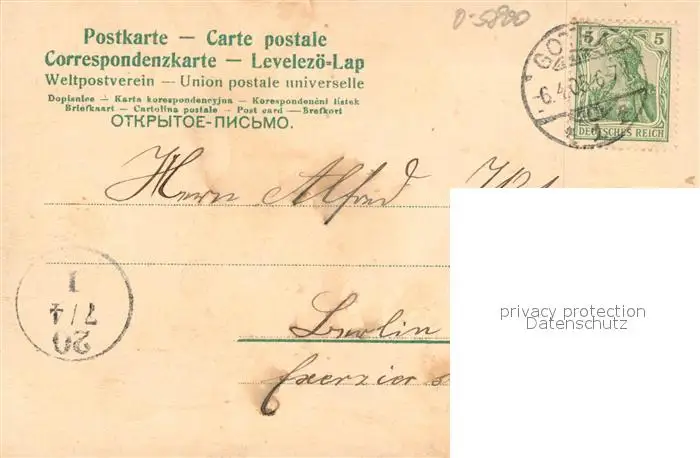 D-5800
Postkarte — Carte postale
Correspondenzkarte — Levelezö-Lap
Weltpostverein — Union postale universelle
Dopisnice — Karta korespondencyjna — Korespondenční lístek
Briefkaart — Cartolina postale — Post card — Brefkort
ОТКРЫТОЕ-ПИСЬМО.
5 5
DEUTSCHES REICH
GOT
-6.4.05.6-7
Herrn Alfred
Berlin
Exerzier
1
7/4
20
privacy protection
Datenschutz